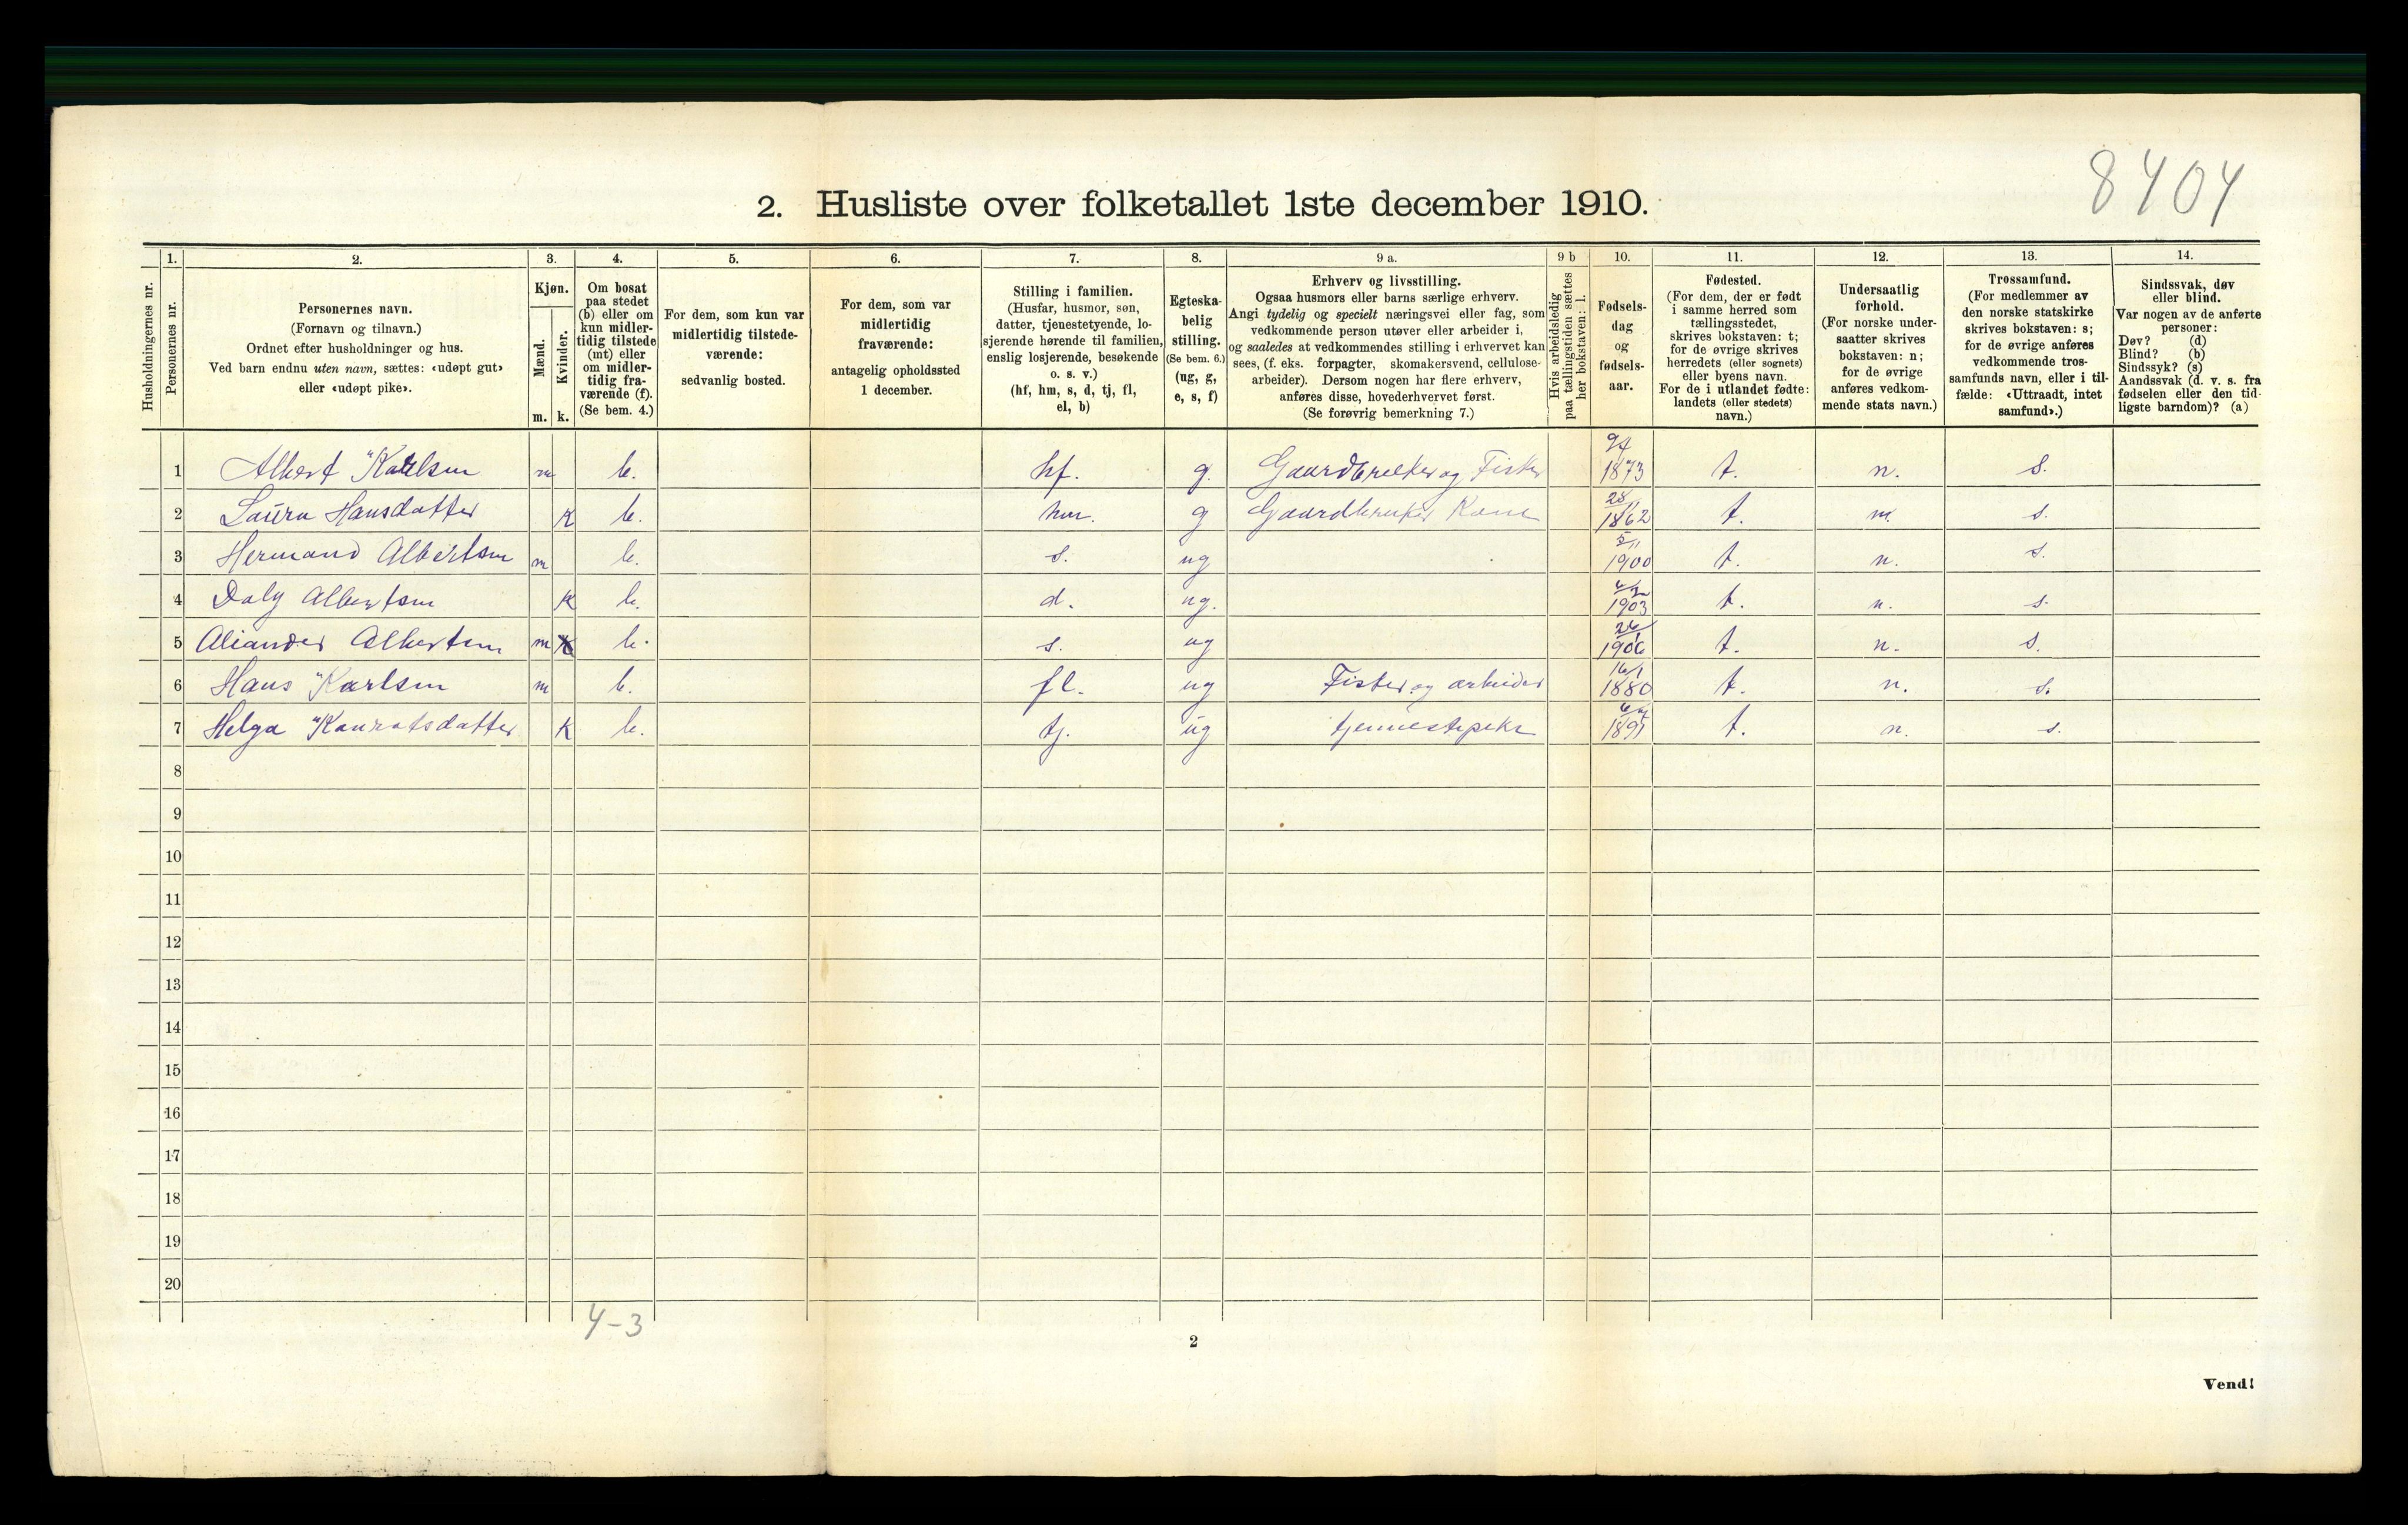 8404
2. Husliste over folketallet 1ste december 1910.
Husholdningernes nr.
1.
Personernes nr.
2.
Personernes navn.
(Fornavn og tilnavn.)
Ordnet efter husholdninger og hus.
Ved barn endnu uten navn, sættes: «udøpt gut»
eller «udøpt pike».
3.
Kjøn.
Mænd.
Kvinder.
m. k.
4.
Om bosat
paa stedet
(b) eller om
kun midler-
tidig tilstede
(mt) eller
om midler-
tidig fra-
værende (f).
(Se bem. 4.)
5.
For dem, som kun var
midlertidig tilstede-
værende:
sedvanlig bosted.
6.
For dem, som var
midlertidig
fraværende:
antagelig opholdssted
1 december.
7.
Stilling i familien.
(Husfar, husmor, søn,
datter, tjenestetyende, lo-
sjerende hørende til familien,
enslig losjerende, besøkende
o. s. v.)
(hf, hm, s, d, tj, fl,
el, b)
8.
Egteska-
belig
stilling.
(Se bem. 6.)
(ug, g,
e, s, f)
9 a.
Erhverv og livsstilling.
Ogsaa husmors eller barns særlige erhverv.
Angi tydelig og specielt næringsvei eller fag, som
vedkommende person utøver eller arbeider i,
og saaledes at vedkommendes stilling i erhvervet kan
sees, (f. eks. forpagter, skomakersvend, cellulose-
arbeider). Dersom nogen har flere erhverv,
anføres disse, hovederhvervet først.
(Se forøvrig bemerkning 7.)
9 b
Hvis arbeidsledig
paa tællingstiden sættes
her bokstaven: l.
10.
Fødsels-
dag
og
fødsels-
aar.
11.
Fødested.
(For dem, der er født
i samme herred som
tællingsstedet,
skrives bokstaven: t;
for de øvrige skrives
herredets (eller sognets)
eller byens navn.
For de i utlandet fødte:
landets (eller stedets)
navn.)
12.
Undersaatlig
forhold.
(For norske under-
saatter skrives
bokstaven: n;
for de øvrige
anføres vedkom-
mende stats navn.)
13.
Trossamfund.
(For medlemmer av
den norske statskirke
skrives bokstaven: s;
for de øvrige anføres
vedkommende tros-
samfunds navn, eller i til-
fælde: «Uttraadt, intet
samfund».)
14.
Sindssvak, døv
eller blind.
Var nogen av de anførte
personer:
Døv? (d)
Blind? (b)
Sindssyk? (s)
Aandssvak (d. v. s. fra
fødselen eller den tid-
ligste barndom)? (a)
1 Albert Karlsen m b. hf. g. Gaardbruker og Fisker 1873 t. n. s.
2 Laura Hansdatter K b. hm. g Gaardbruker Kone 28/11 1862 t. n. s.
3 Hermand Albertsen m b. s. ug 5/11 1900 t. n. s.
4 Daly Albertsen K b. d. ug. 1903 t. n. s.
5 Albertsen m b. s. ug 1906 t. n. s.
6 Hans Karlsen m b. fl. ug Fisker og arbeider 16/1 1880 t. n. s.
7 Helga Konratsdatter K b. tj. ug tjennestepike 1891 t. n. s.
8
9
10
11
12
13
14
15
16
17
18
19
20
4-3
2
Vend!